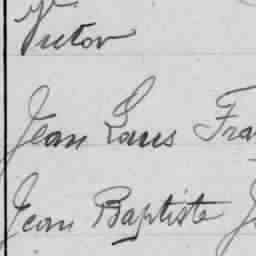 Victor
Jean Louis Fra
Jean Baptiste J